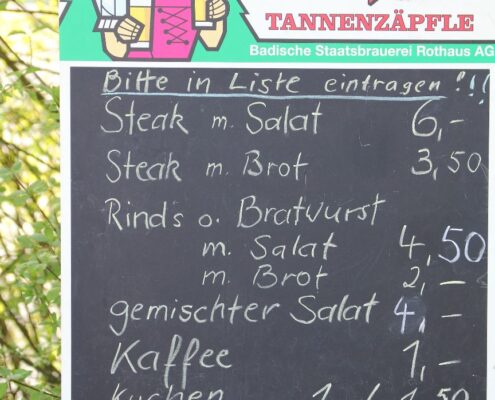 TANNENZÄPFLE
Badische Staatsbrauerei Rothaus AG
Bitte in Liste eintragen!!!
Steak m. Salat 6,-
Steak m. Brot 3,50
Rinds o. Bratwurst
m. Salat 4,50
m. Brot 2,-
gemischter Salat 4,-
Kaffee 1,-
Kuchen 1,- / 1,50